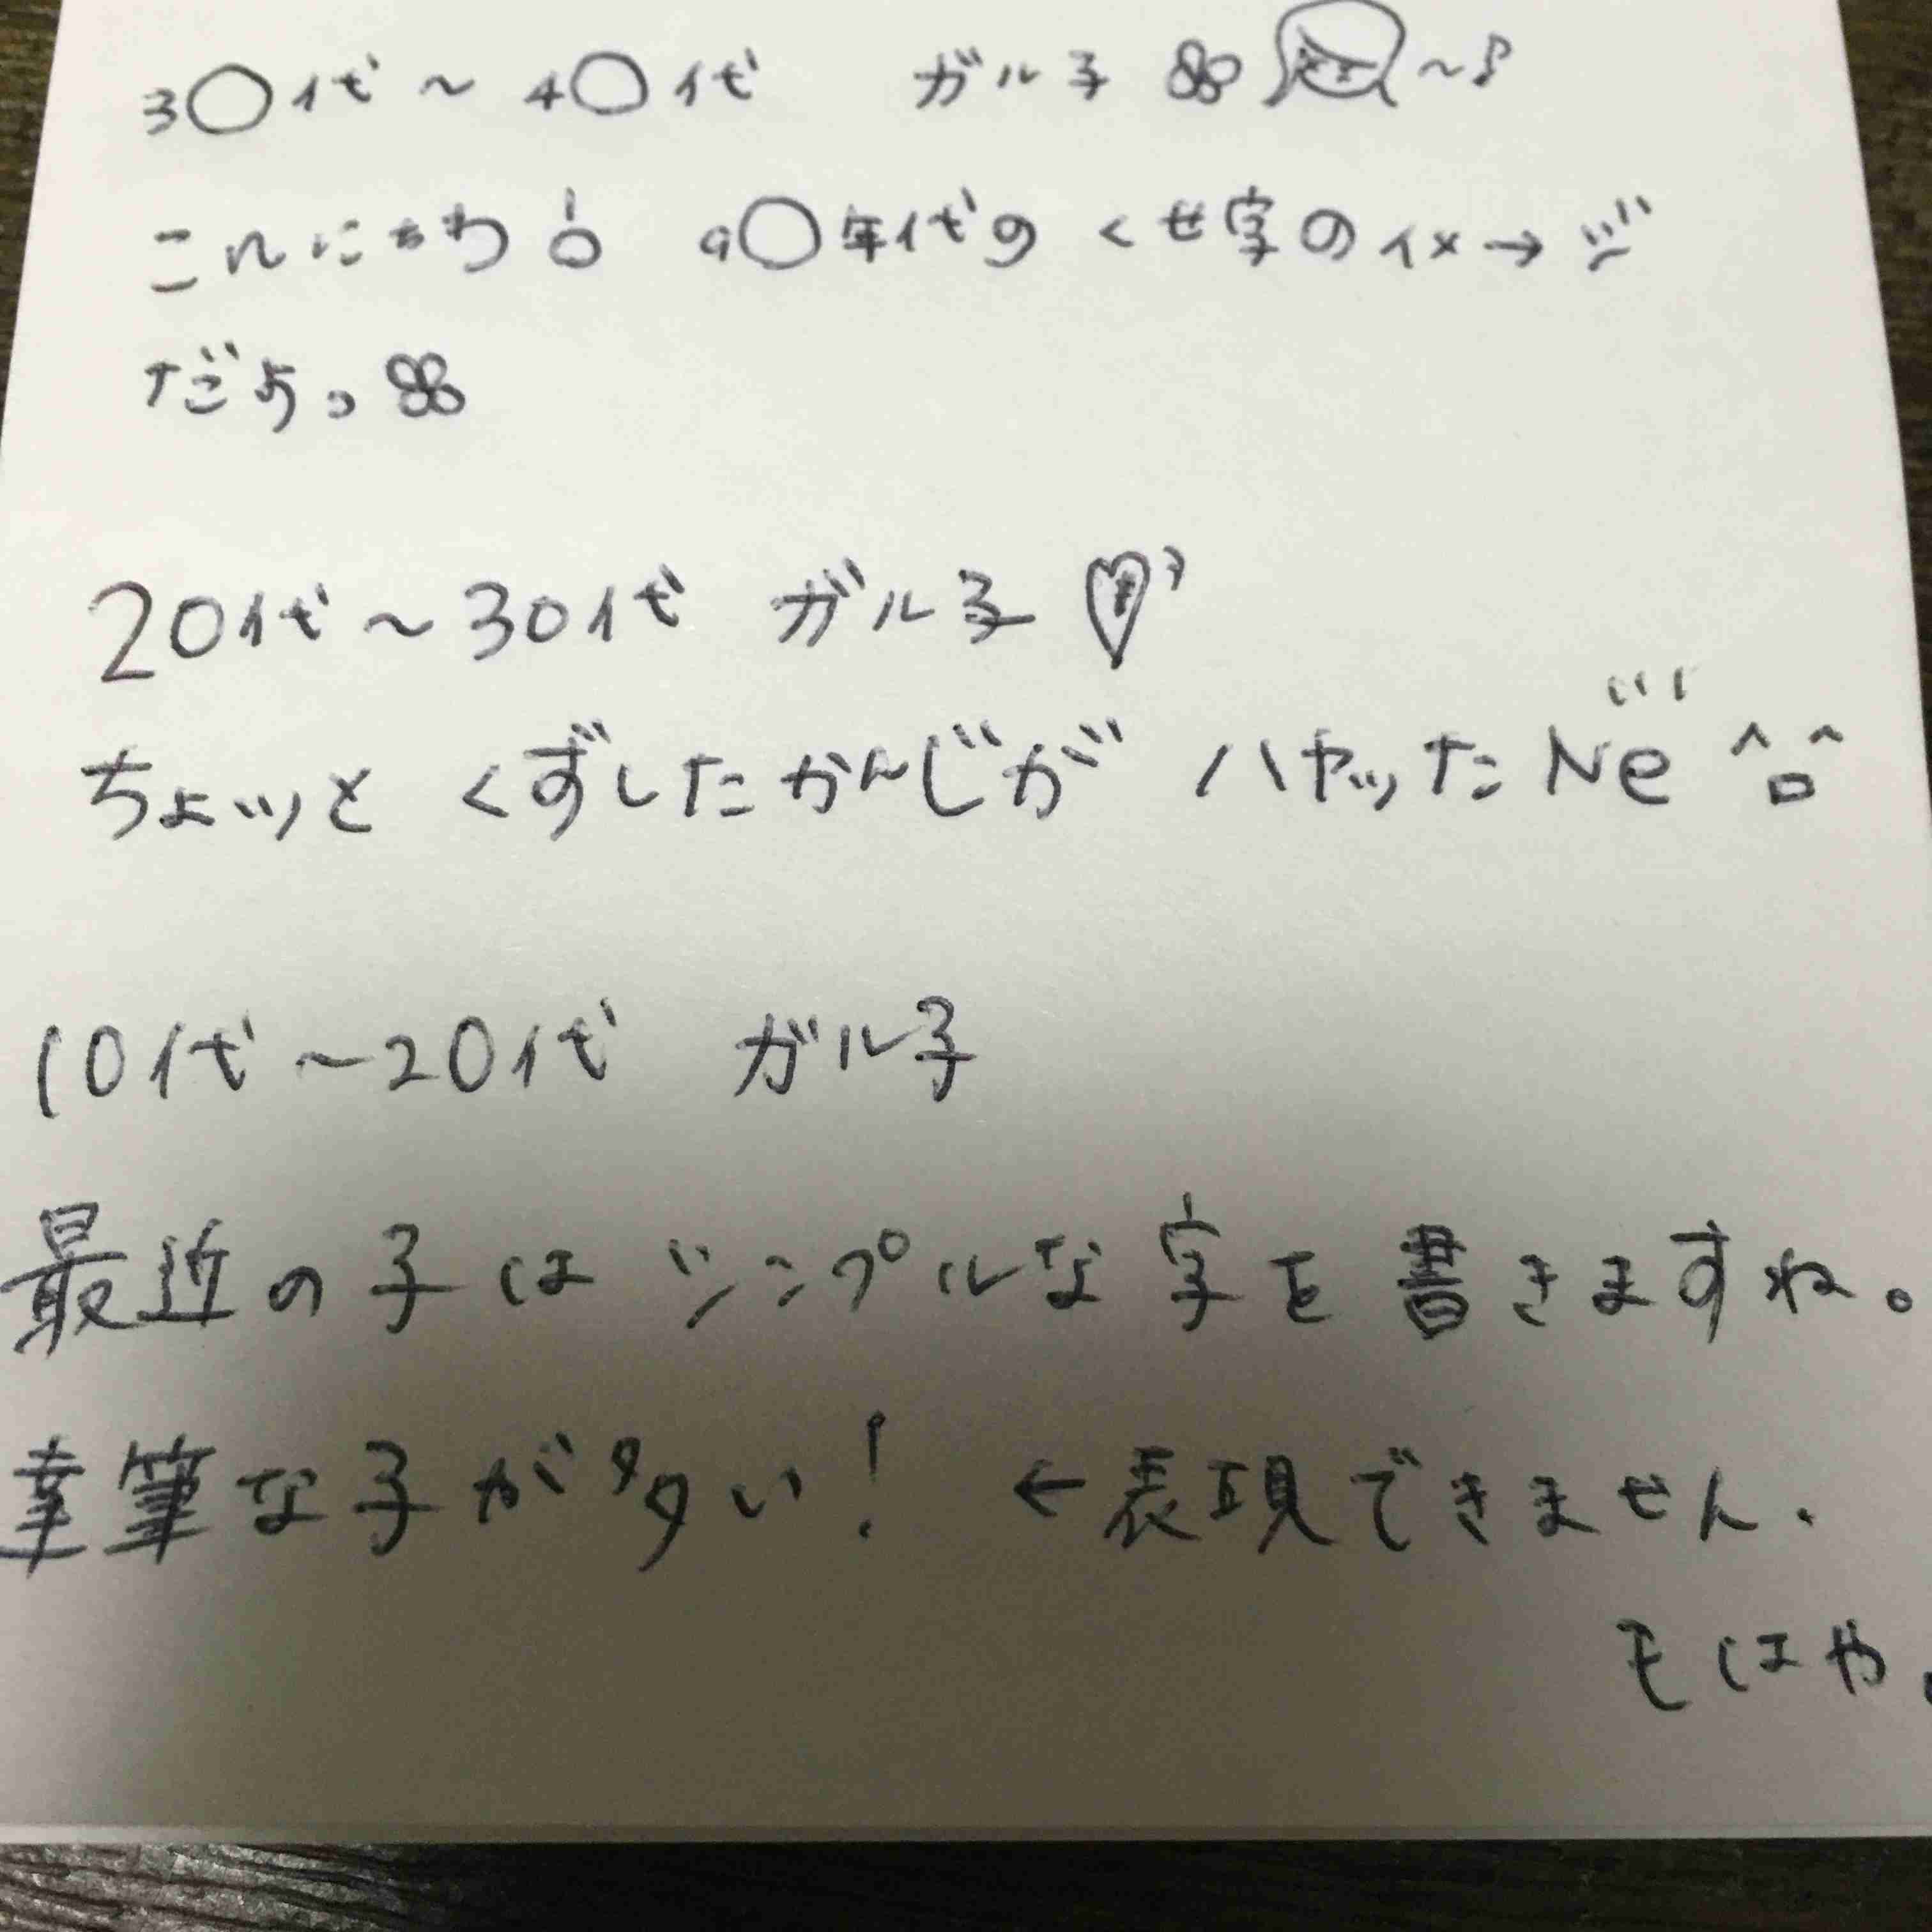 30代～40代 ガル子 ～♪
こんにちわ! 90年代の くせ字のイメージ
だょぅっ
20代～30代 ガル子♡
ちょッと くずしたかんじが ハヤッたNe ^ロ^
10代～20代 ガル子
最近の子はシンプルな字を書きますね。
達筆な子が多い! ←表現できません.
もはや。